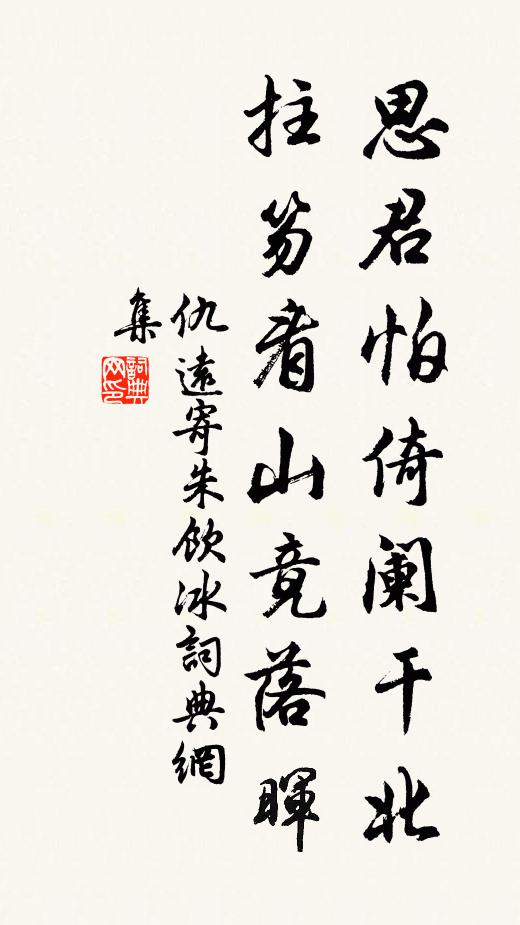 思君怕倚阑干北
拄笏看山竟落暉
仇遠寄朱飲冰詞典網
集
詞典網印